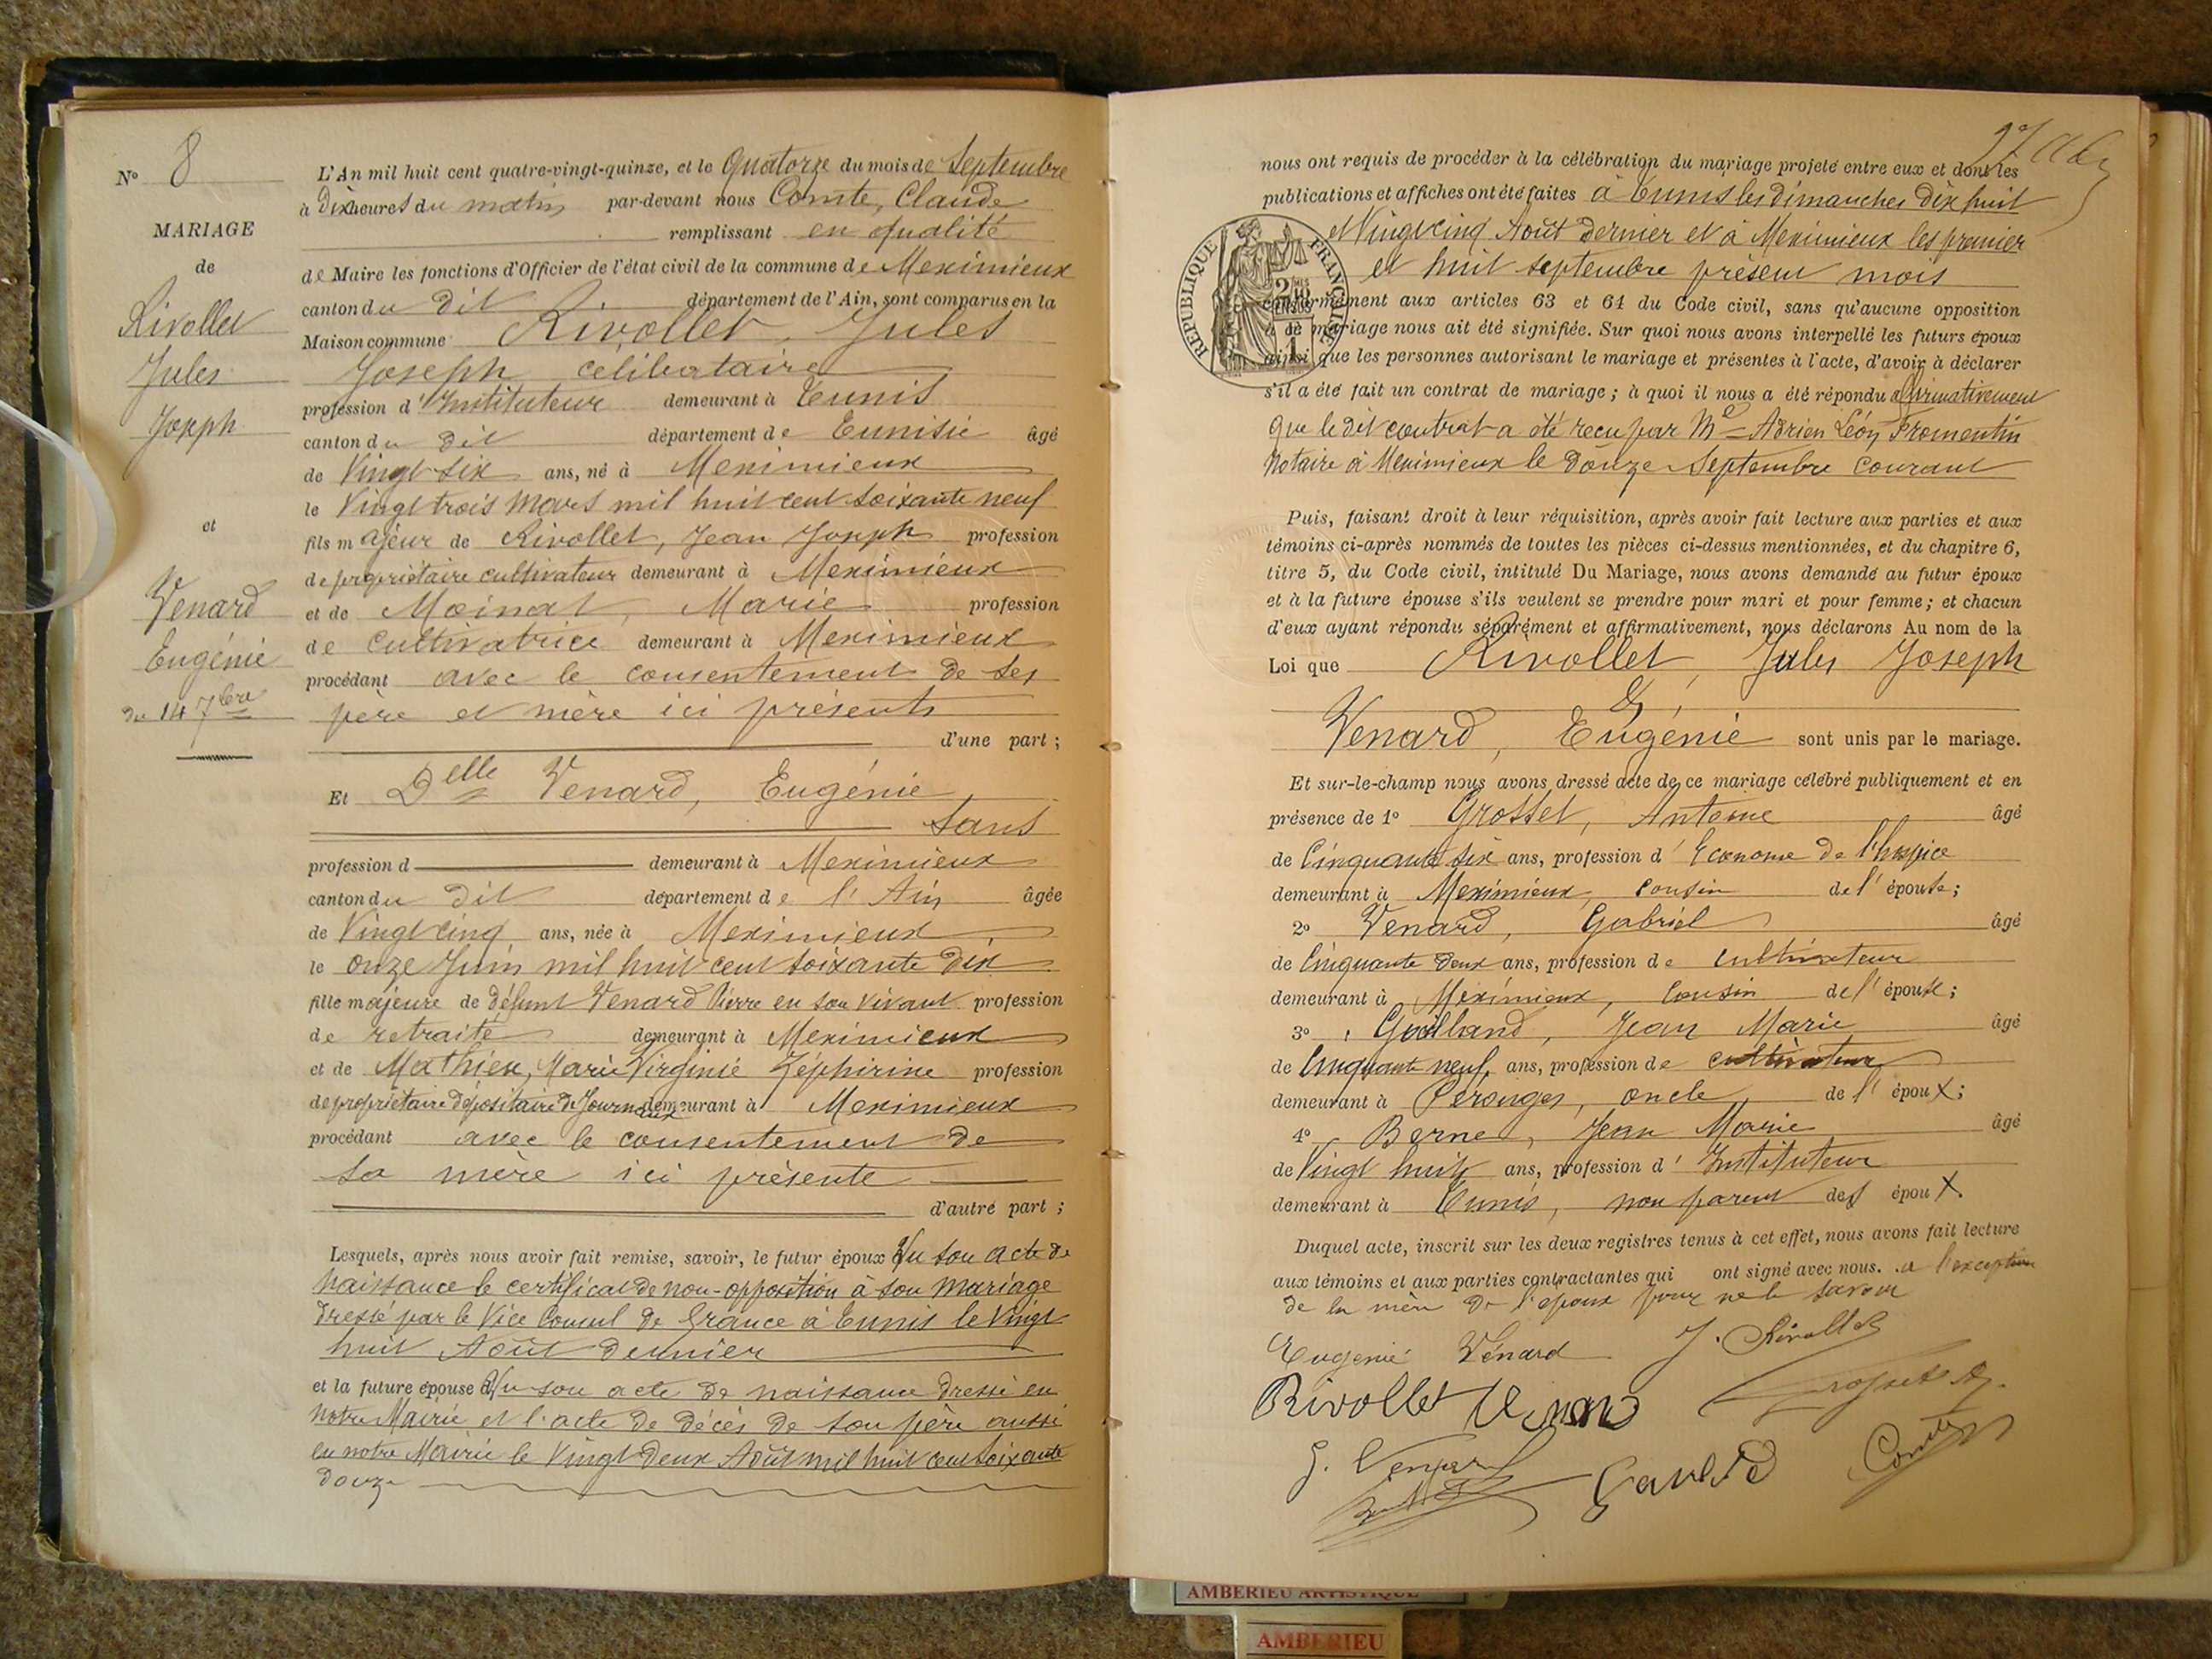 N° 8
MARIAGE
de
Rivollet
Jules
Joseph
et
Venard
Eugénie
du 14 7bre
L'An mil huit cent quatre-vingt-quinze, et le Quatorze du mois de Septembre
à Dix heures du matin par-devant nous Comte, Claude
remplissant en qualité
de Maire les fonctions d'Officier de l'état civil de la commune de Meximieux
canton du dit département de l'Ain, sont comparus en la
Maison commune Rivollet, Jules
Joseph célibataire
profession d'Instituteur demeurant à Tunis
canton du dit département de Tunisie âgé
de Vingt six ans, né à Meximieux
le Vingt trois Mars mil huit cent soixante neuf
fils majeur de Rivollet, Jean Joseph profession
de propriétaire cultivateur demeurant à Meximieux
et de Moinat, Marie profession
de cultivatrice demeurant à Meximieux
procédant avec le consentement de ses
père et mère ici présents
d'une part ;
Et Delle Venard, Eugénie
sans
profession d demeurant à Meximieux
canton du dit département de l'Ain âgée
de Vingt cinq ans, née à Meximieux
le onze Juin mil huit cent soixante dix
fille majeure de défunt Venard Pierre en son vivant profession
de retraité demeurant à Meximieux
et de Mathieu, Marie Virginie Zéphirine profession
de propriétaire dépositaire de Journaux demeurant à Meximieux
procédant avec le consentement de
sa mère ici présente
d'autre part ;
Lesquels, après nous avoir fait remise, savoir, le futur époux Vu son acte de
naissance le certificat de non-opposition à son mariage
dressé par le Vice Consul de France à Tunis le Vingt
huit Août dernier
et la future épouse Vu son acte de naissance dressé en
notre Mairie et l'acte de décès de son père aussi
en notre Mairie le Vingt deux Août mil huit cent soixante
douze
nous ont requis de procéder à la célébration du mariage projeté entre eux et dont les
publications et affiches ont été faites à Tunis les dimanches dix huit
et Vingt cinq Août dernier et à Meximieux les premier
et huit septembre présent mois
REPUBLIQUE FRANÇAISE
conformément aux articles 63 et 64 du Code civil, sans qu'aucune opposition
à ce mariage nous ait été signifiée. Sur quoi nous avons interpellé les futurs époux
ainsi que les personnes autorisant le mariage et présentes à l'acte, d'avoir à déclarer
s'il a été fait un contrat de mariage ; à quoi il nous a été répondu affirmativement
que le dit contrat a été reçu par Me Adrien Léon Fromentin
Notaire à Meximieux le douze Septembre courant
Puis, faisant droit à leur réquisition, après avoir fait lecture aux parties et aux
témoins ci-après nommés de toutes les pièces ci-dessus mentionnées, et du chapitre 6,
titre 5, du Code civil, intitulé Du Mariage, nous avons demandé au futur époux
et à la future épouse s'ils veulent se prendre pour mari et pour femme ; et chacun
d'eux ayant répondu séparément et affirmativement, nous déclarons Au nom de la
Loi que Rivollet, Jules Joseph
&
Venard, Eugénie sont unis par le mariage.
Et sur-le-champ nous avons dressé acte de ce mariage célébré publiquement et en
présence de 1° Grosset, Antoine âgé
de Cinquante six ans, profession d'Econome de l'hospice
demeurant à Meximieux, cousin de l'épouse ;
2° Venard, Gabriel âgé
de Cinquante deux ans, profession de cultivateur
demeurant à Meximieux, cousin de l'épouse ;
3° Goilland, Jean Marie âgé
de Cinquante neuf ans, profession de cultivateur
demeurant à Pérouges, oncle de l'époux ;
4° Berne, Jean Marie âgé
de Vingt huit ans, profession d'Instituteur
demeurant à Tunis, non parent des époux.
Duquel acte, inscrit sur les deux registres tenus à cet effet, nous avons fait lecture
aux témoins et aux parties contractantes qui ont signé avec nous. à l'exception
de la mère de l'époux pour ne le savoir
Eugénie Vénard J. Rivollet
Rivollet Venard Grosset A.
G. Venard Comte
AMBERIEU ARTISTIQUE
AMBERIEU